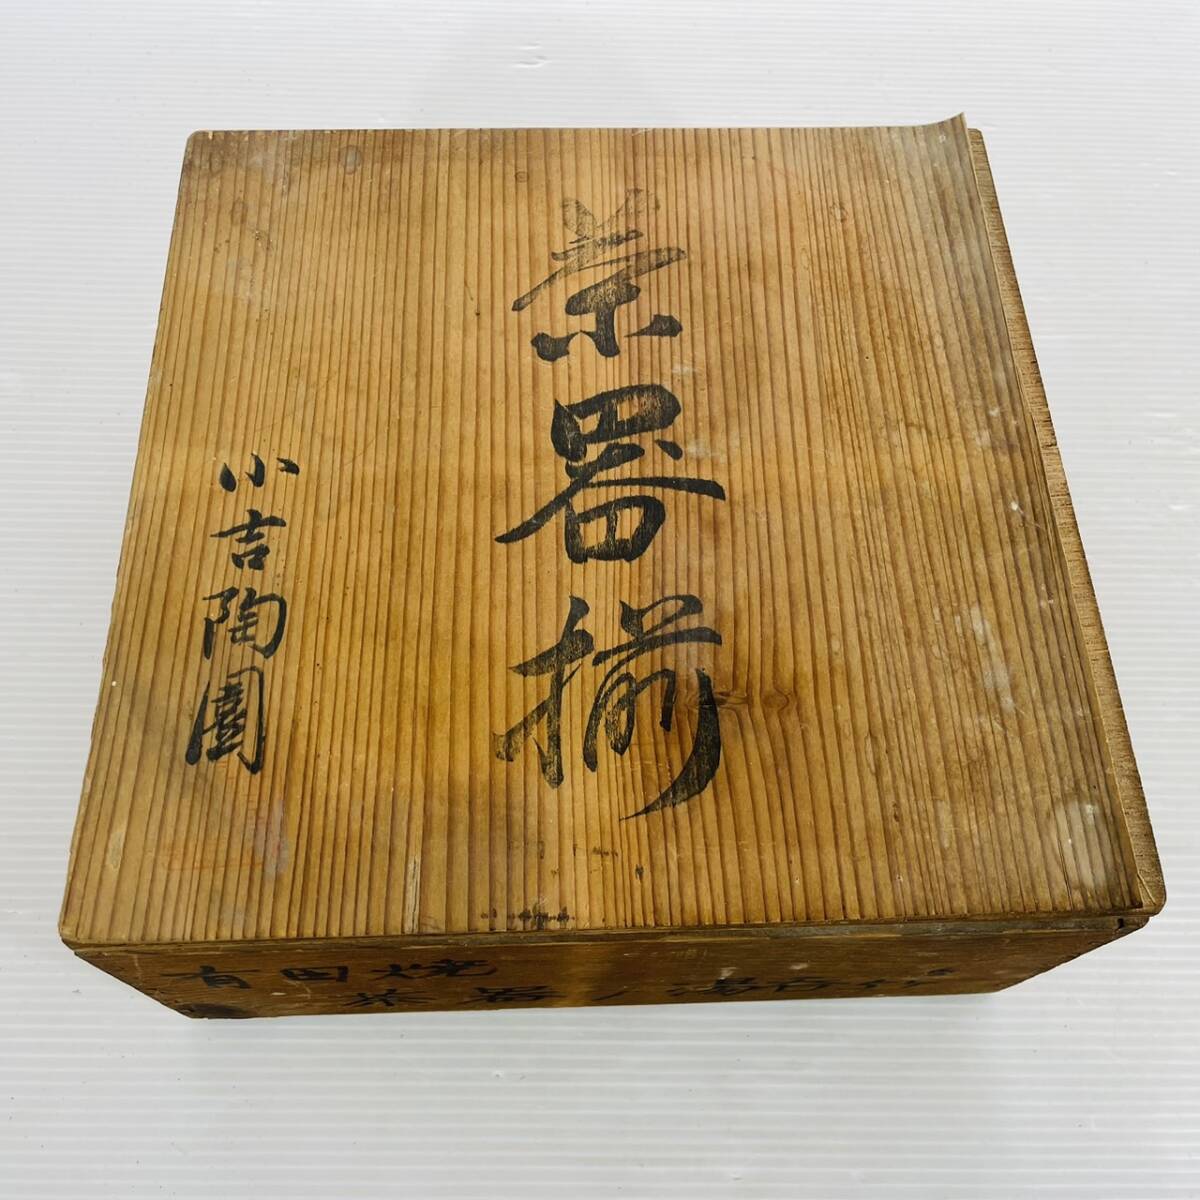 茶器揃
小吉陶園
有田焼
茶器ノ湯